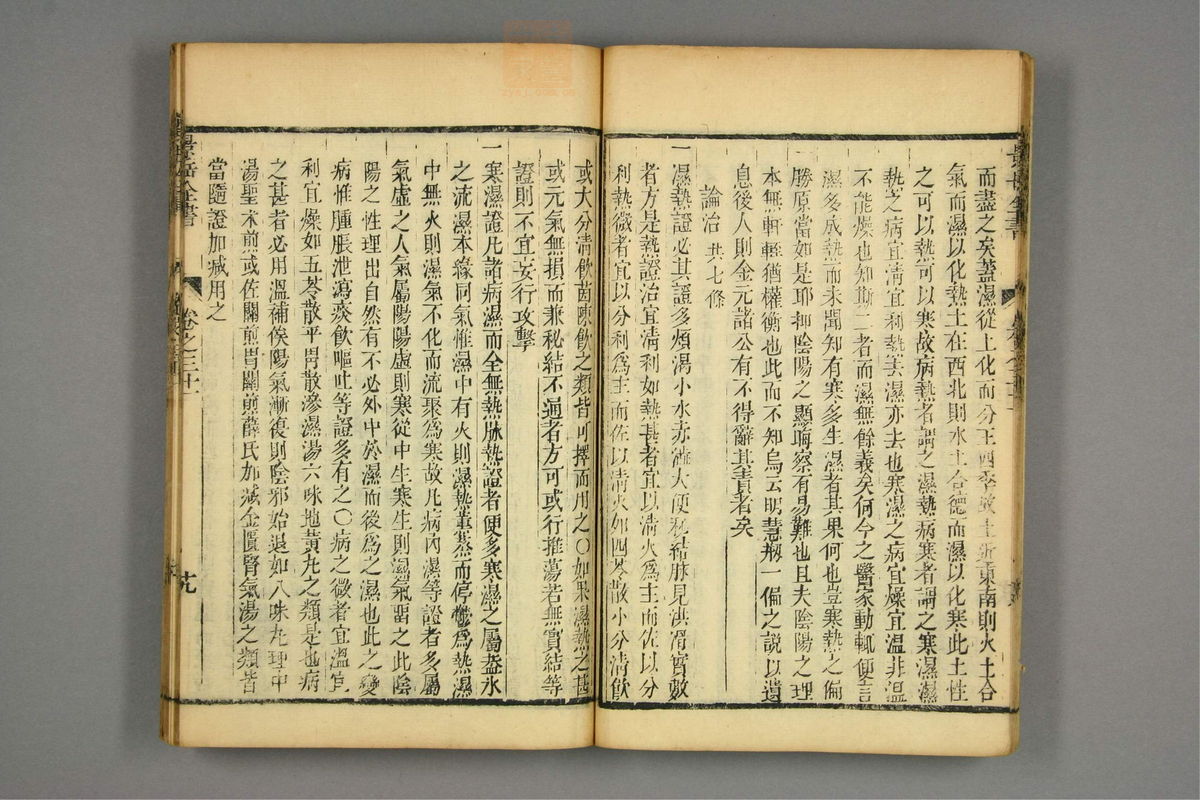 而盡之矣蓋濕從土化而分王四季故土近東南則火土合
氣而濕以化熱土在西北則水土合德而濕以化寒此土性
之可以熱可以寒故病熱者謂之濕熱病寒者謂之寒濕濕
熱之病宜清宜利熱去濕亦去也寒濕之病宜燥宜温非温
不能燥也知斯二者而濕無餘義矣何今之醫家動輒便言
濕多成熱而未聞知有寒多生濕者其果何也豈寒熱之偏
勝原當如是耶抑陰陽之顯晦察有易難也且夫陰陽之理
本無軒輊猶權衡也此而不知烏云明慧刱一偏之說以遺
息後人則金元諸公有不得辭其責者矣
論治 共七條
一濕熱證必其證多煩渴小水赤澁大便秘結脉見洪滑實數
者方是熱證治宜清利如熱甚者宜以清火爲主而佐以分
利熱微者宜以分利爲主而佐以清火如四苓散小分清飲
或大分清飲茵陳飲之類皆可擇而用之〇如果濕熱之甚
或元氣無損而兼秘結不通者方可或行推蕩若無實結等
證則不宜妄行攻擊
一寒濕證凡諸病濕而全無熱脉熱證者便多寒濕之屬蓋水
之流濕本緣同氣惟濕中有火則濕熱薰蒸而停鬱爲熱濕
中無火則濕氣不化而流聚爲寒故凡病內濕等證者多屬
氣虛之人氣屬陽陽虛則寒從中生寒生則濕氣畱之此陰
陽之性理出自然有不必外中於濕而後爲之濕也此之變
病惟腫脹泄瀉痰飲嘔吐等證多有之〇病之微者宜溫宜
利宜燥如五苓散平胃散滲濕湯六味地黃丸之類是也病
之甚者必用溫補俟陽氣漸復則陰邪始退如八味丸理中
湯聖朮煎或佐關煎胃關煎薛氏加減金匱腎氣湯之類皆
當隨證加減用之
景岳全書
卷之三十一
芫
zysj.com.cn